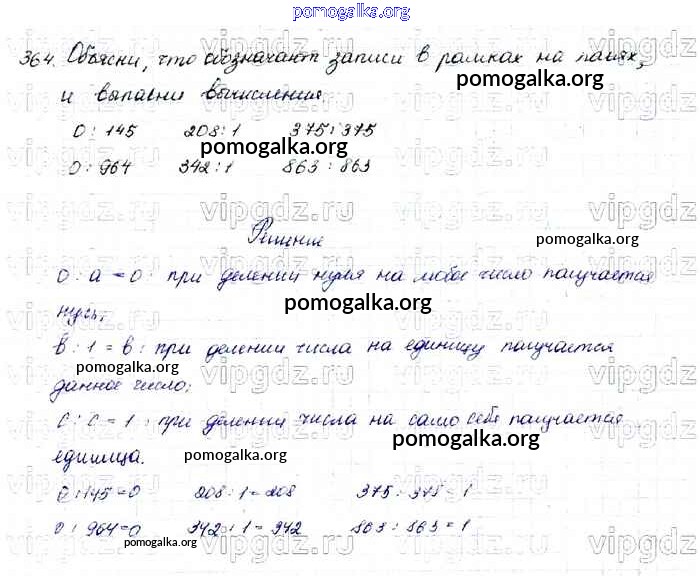 pomogalka.org
364. Объясни, что обозначают записи в рамках на полях,
pomogalka.org
и выполни вычисления
0 : 145 208 : 1 375 : 375
pomogalka.org
0 : 964 342 : 1 863 : 863
vipgdz.ru vipgdz.ru vipgdz.ru
Решение
pomogalka.org
0 : а = 0 : при делении нуля на любое число получается
pomogalka.org
нуль;
в : 1 = в : при делении числа на единицу получается
pomogalka.org
данное число;
с : с = 1 : при делении числа на само себя получается
pomogalka.org
единица.
pomogalka.org
0 : 145 = 0 208 : 1 = 208 375 : 375 = 1
0 : 964 = 0 342 : 1 = 342 863 : 863 = 1
pomogalka.org
pomogalka.org